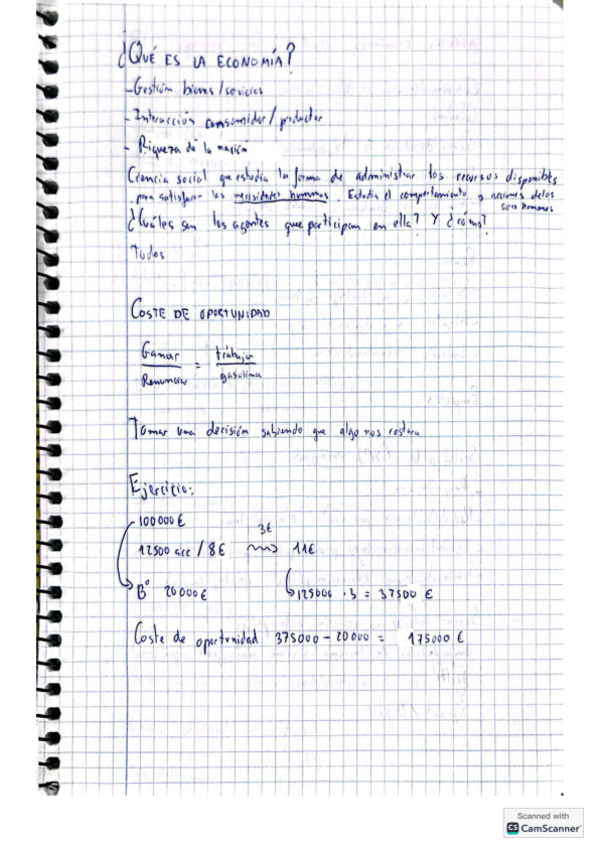 ¿QUÉ ES LA ECONOMÍA?
- Gestión bienes/servicios
- Interacción consumidor/productor
- Riqueza de la nación
Ciencia social que estudia la forma de administrar los recursos disponibles
para satisfacer las necesidades humanas. Estudia el comportamiento y acciones de los
seres humanos
¿Cuáles son los agentes que participan en ella? Y ¿cómo?
Todos
COSTE DE OPORTUNIDAD
Ganar = trabajar
Renunciar gasolina
Tomar una decisión sabiendo que algo nos costara
Ejercicio:
100000 €
3€
12500 acc / 8€ 11€
Bº 20000€ 125000 · 3 = 37500 €
Coste de oportunidad 375000 - 20000 = 175000 €
Scanned with
CS CamScanner